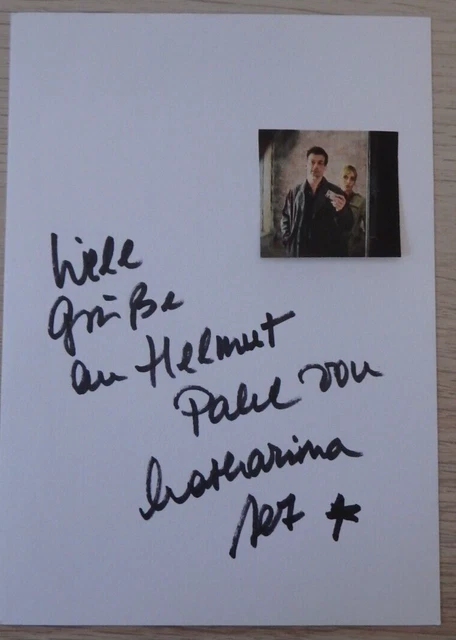 Viele
Grüße
an Helmut
Pahl von
Katharina